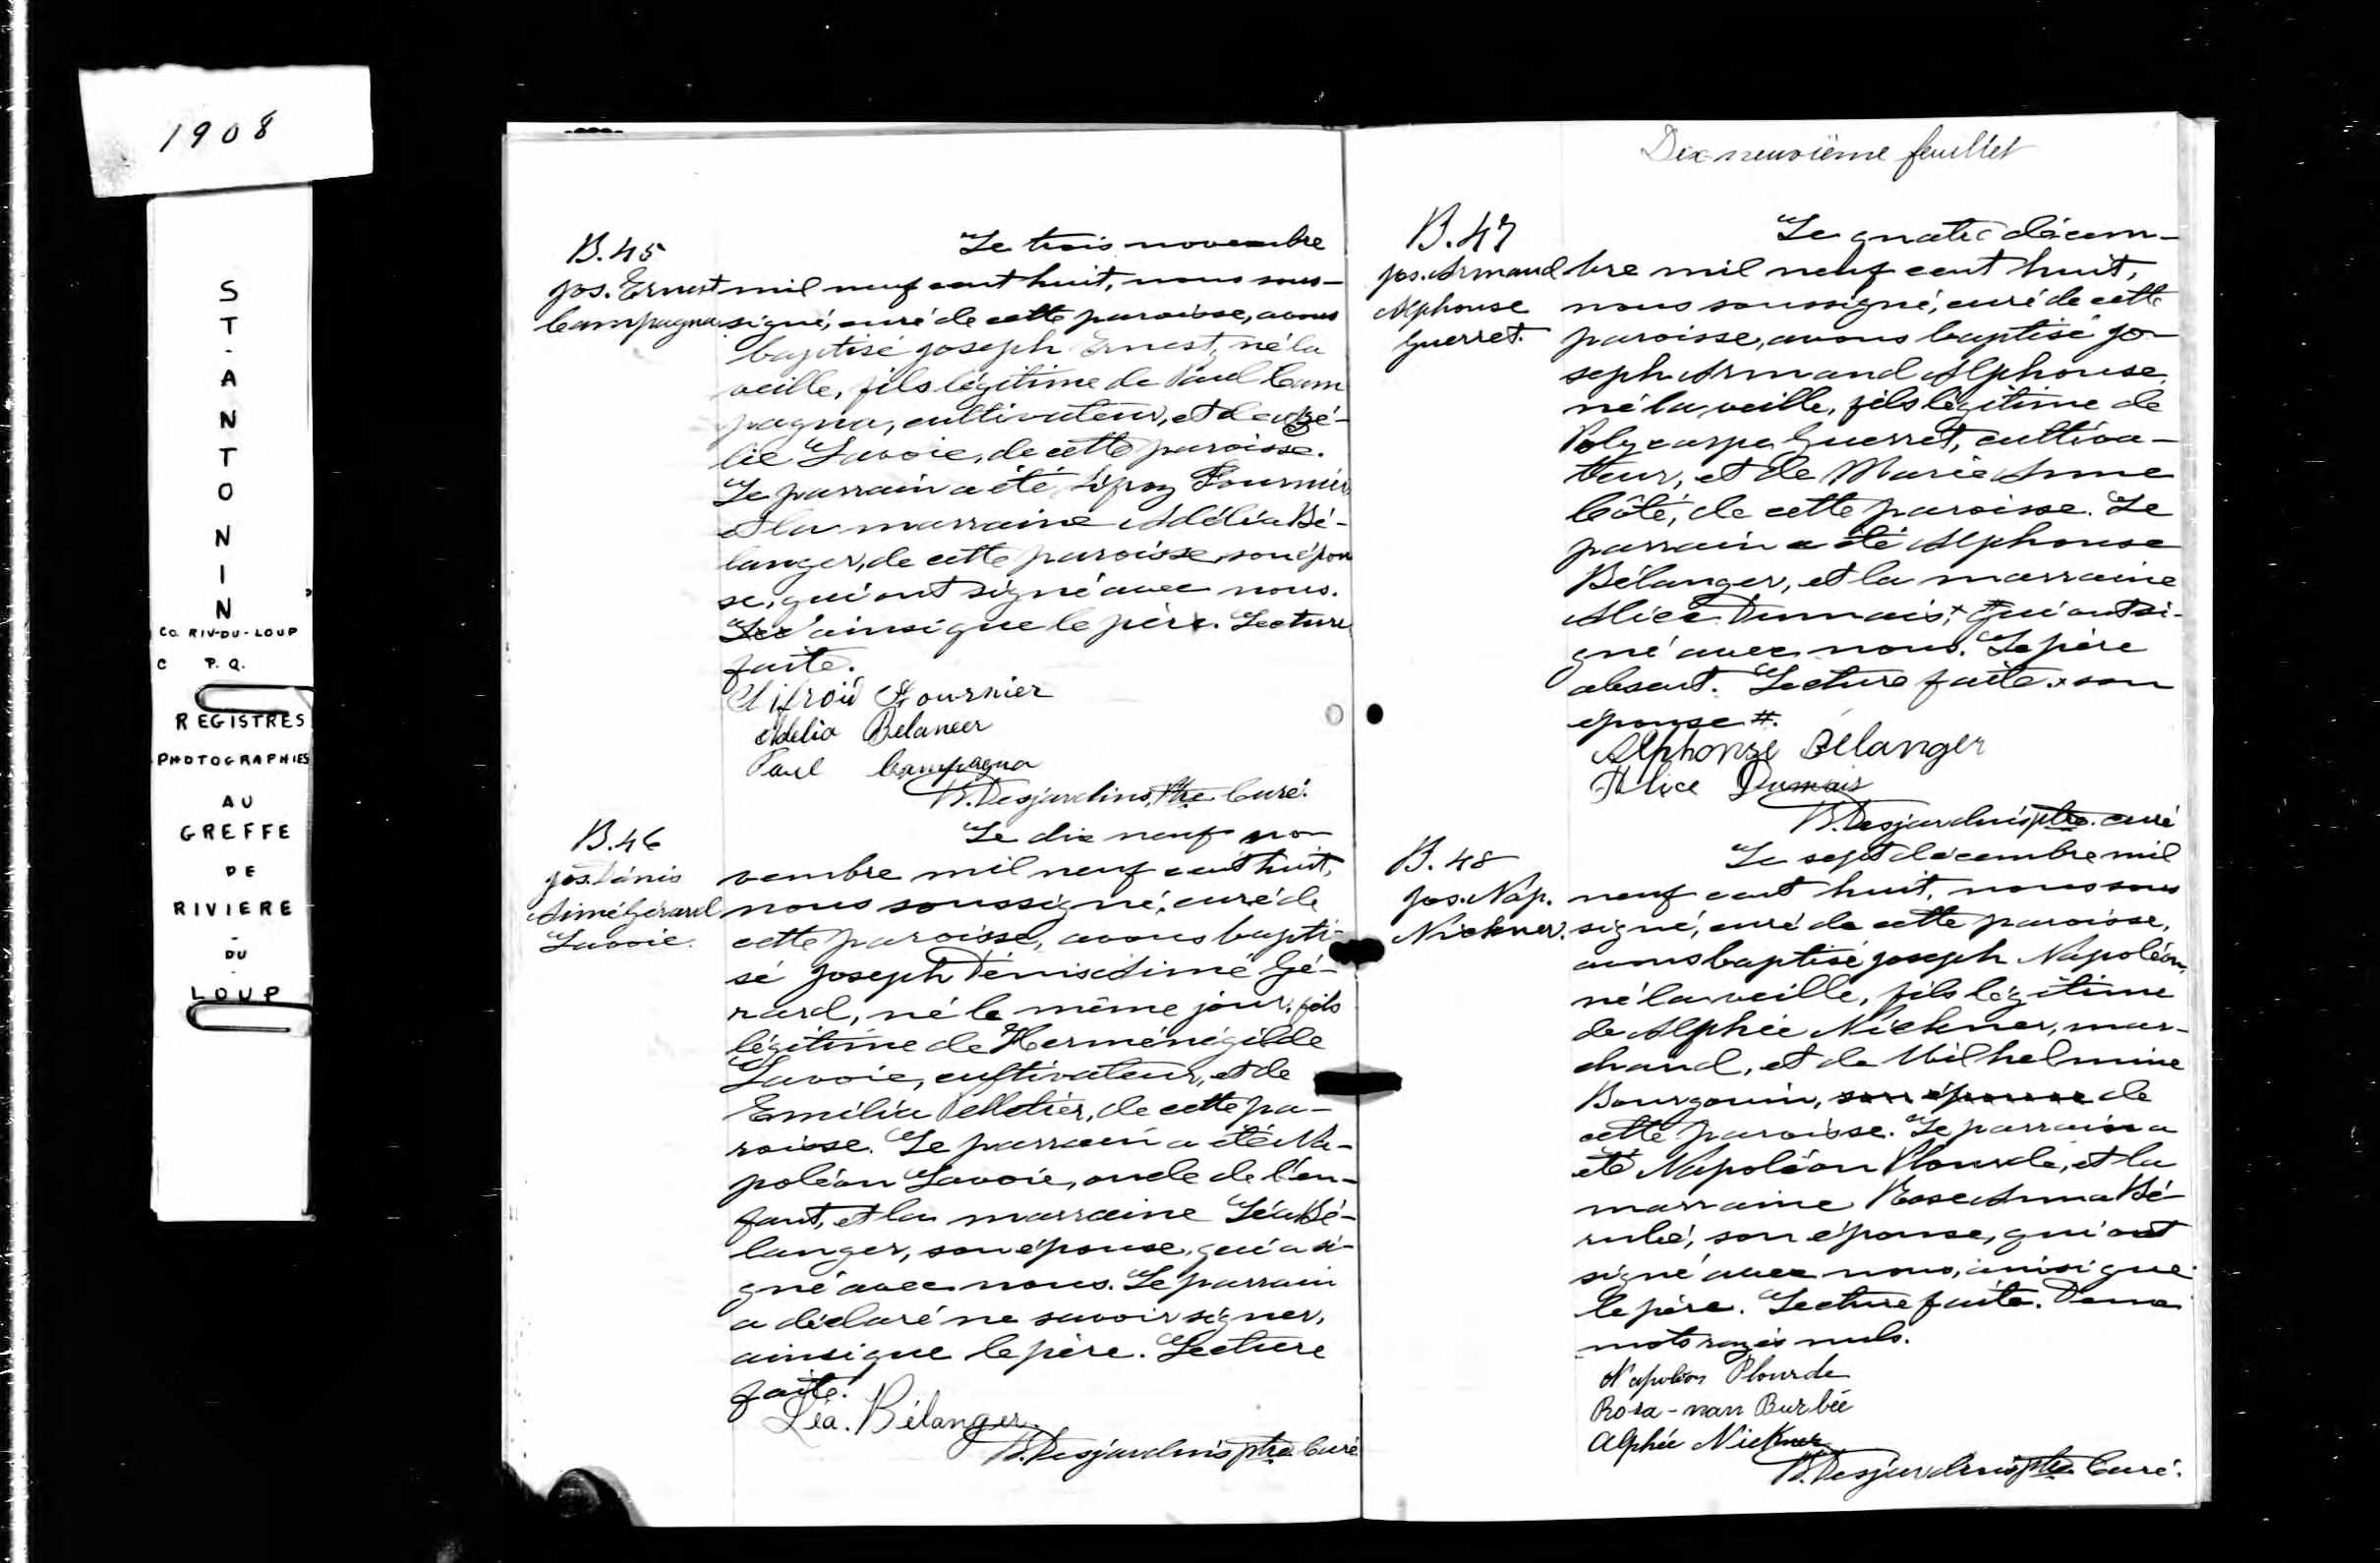 1908
ST-ANTONIN
CO. RIV-DU-LOUP
C P.Q.
REGISTRES
PHOTOGRAPHIES
AU
GREFFE
DE
RIVIERE
-
DU
-
LOUP
B.45
Jos. Ernest
Campagna
Le trois novembre
mil neuf cent huit, nous sous-
signé, curé de cette paroisse, avons
baptisé Joseph Ernest, né la
veille, fils légitime de Paul Cam
pagna, cultivateur, et de Azé-
lie Lavoie, de cette paroisse.
Le parrain a été Sifroy Fournier
et la marraine Adélia Bé-
langer, de cette paroisse, son épou
se, qui ont signé avec nous.
ainsi que le père. Lecture
faite.
Sifroid Fournier
Adelia Belaneer
Paul Campagna
B. Desjardins, Ptre Curé.
B.46
Jos. Dénis
Aimé Gérard
Lavoie.
Le dix neuf no
vembre mil neuf cent huit,
nous soussigné, curé de
cette paroisse, avons bapti-
sé Joseph Dénis Aimé Gé-
rard, né le même jour, fils
légitime de Herménégilde
Lavoie, cultivateur, et de
Emélia Pelletier, de cette pa-
roisse. Le parrain a été Na-
poléon Lavoie, oncle de l'en-
fant, et la marraine Léa Bé-
langer, son épouse, qui a si-
gné avec nous. Le parrain
a déclaré ne savoir signer,
ainsi que le père. Lecture
faite.
Léa. Bélanger.
B. Desjardins ptre Curé
Dix-neuvième feuillet
B.47
Jos. Armand
Alphonse
Guerret.
Le quatre décem-
bre mil neuf cent huit,
nous soussigné, curé de cette
paroisse, avons baptisé Jo-
seph Armand Alphonse,
né la veille, fils légitime de
Polycarpe Guerret, cultiva-
teur, et de Marie Anne
Côté, de cette paroisse. Le
parrain a été Alphonse
Bélanger, et la marraine
Alice Dumais, x # qui ont si-
gné avec nous. Le père
absent. Lecture faite. x son
épouse #.
Alphonse Bélanger
Alice Dumais
B. Desjardins ptre. curé
B.48
Jos. Nap.
Nickner.
Le sept décembre mil
neuf cent huit, nous sous
signé, curé de cette paroisse,
avons baptisé Joseph Napoléon,
né la veille, fils légitime
de Alphée Nickner, mar-
chand, et de Wilhelmine
Bourgouin, son épouse de
cette paroisse. Le parrain a
été Napoléon Plourde, et la
marraine Rose Anna Bé-
rubé, son épouse, qui ont
signé avec nous, ainsi que
le père. Lecture faite. Deux
mots rayés nuls.
Napoléon Plourde
Rosa-nan Burbée
Alphée Nickner
B. Desjardins ptre Curé.